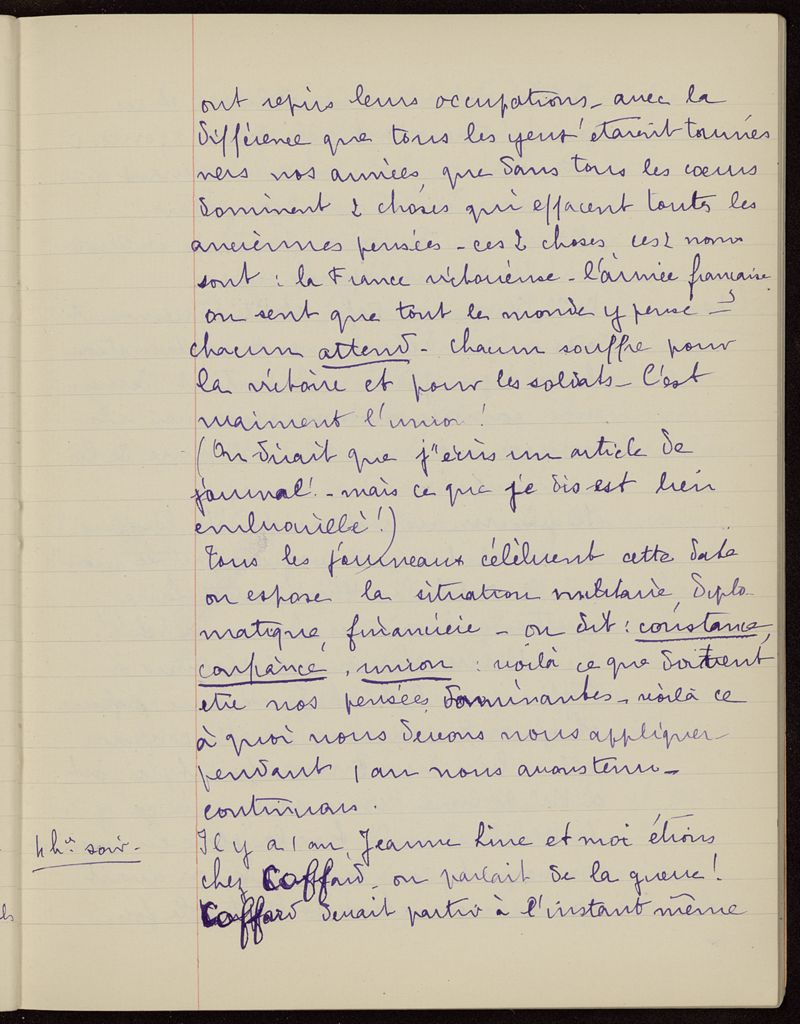 ont repris leurs occupations - avec la
différence que tous les yeux étaient tournés
vers nos armées que dans tous les cœurs
dominent 2 choses qui effacent toutes les
anciennes pensées - ces 2 choses ces 2 noms
sont : la France victorieuse - l'armée française
on sent que tout le monde y pense -
chacun attend - chacun souffre pour
la victoire et pour les soldats - C'est
vraiment l'union !
(On dirait que j'écris un article de
journal ! - mais ce que je dis est bien
embrouillé !)
Tous les journeaux célèbrent cette date
on expose la situation militaire, diplo-
matique, financière - on dit : constance,
confiance, union : voilà ce que doivent
etre nos pensées dominantes - voilà ce
à quoi nous devons nous appliquer -
pendant 1 an nous avons tenu -
continuons.
4 hes soir -
Il y a 1 an, Jeanne Line et moi étions
chez Coffard - on parlait de la guerre !
Coffard devait partir à l'instant même